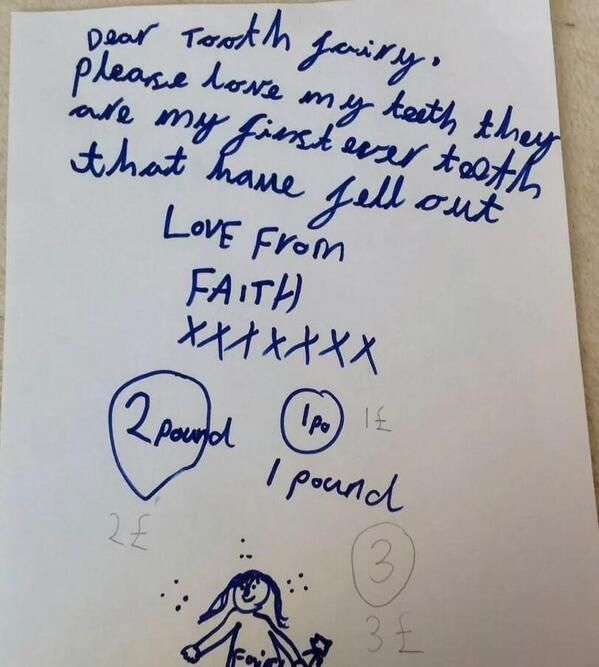 Dear Tooth fairy.
please love my teeth they
are my first ever teeth
that have fell out
LOVE From
FAITH
XXXXXXX
2 pound
1po
1£
1 pound
2£
3
3£
Fairy